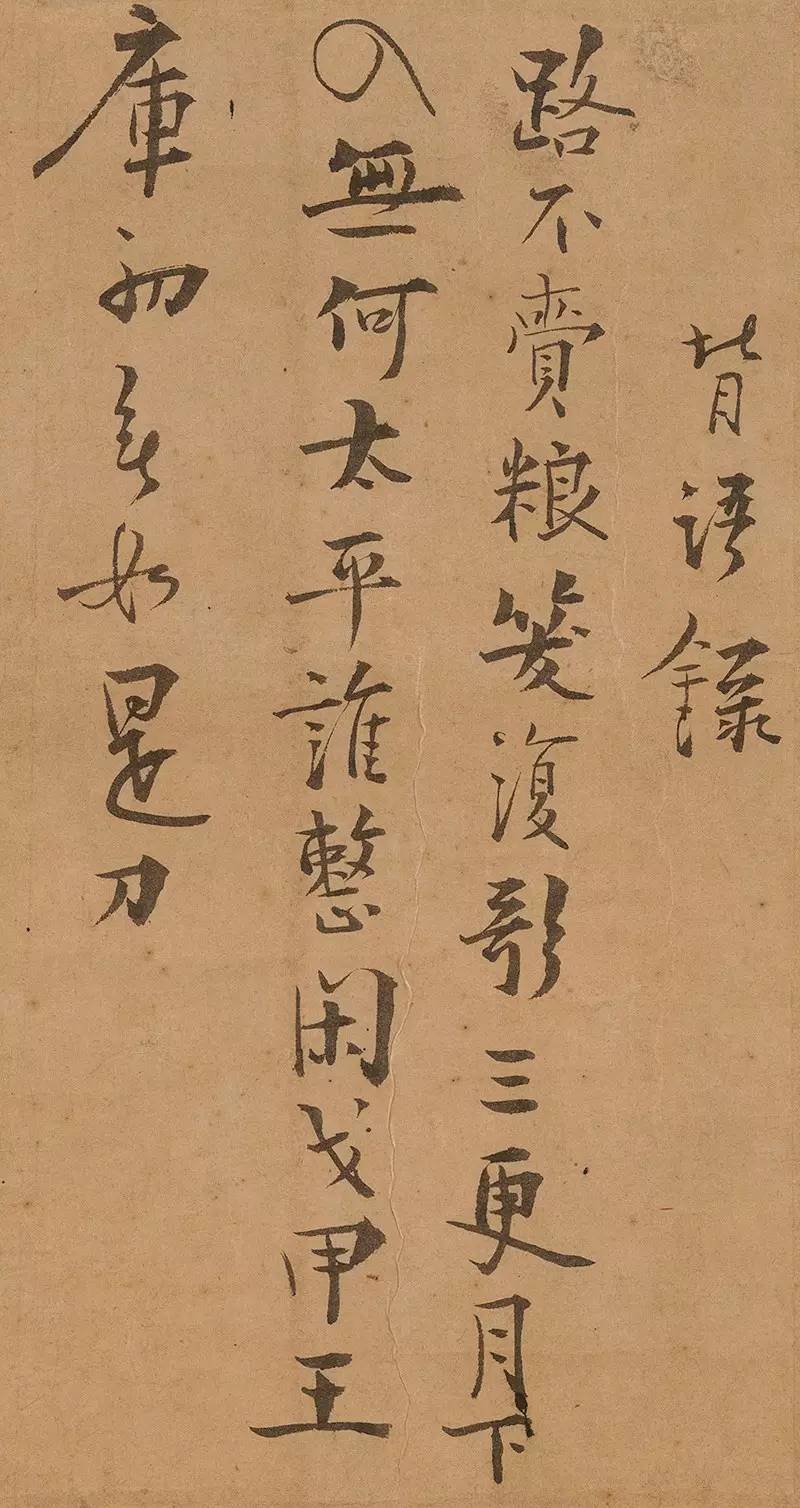 背語錄
路不賫粮笑復歌三更月下
入無何太平誰整閑戈甲王
庫初無如是刀